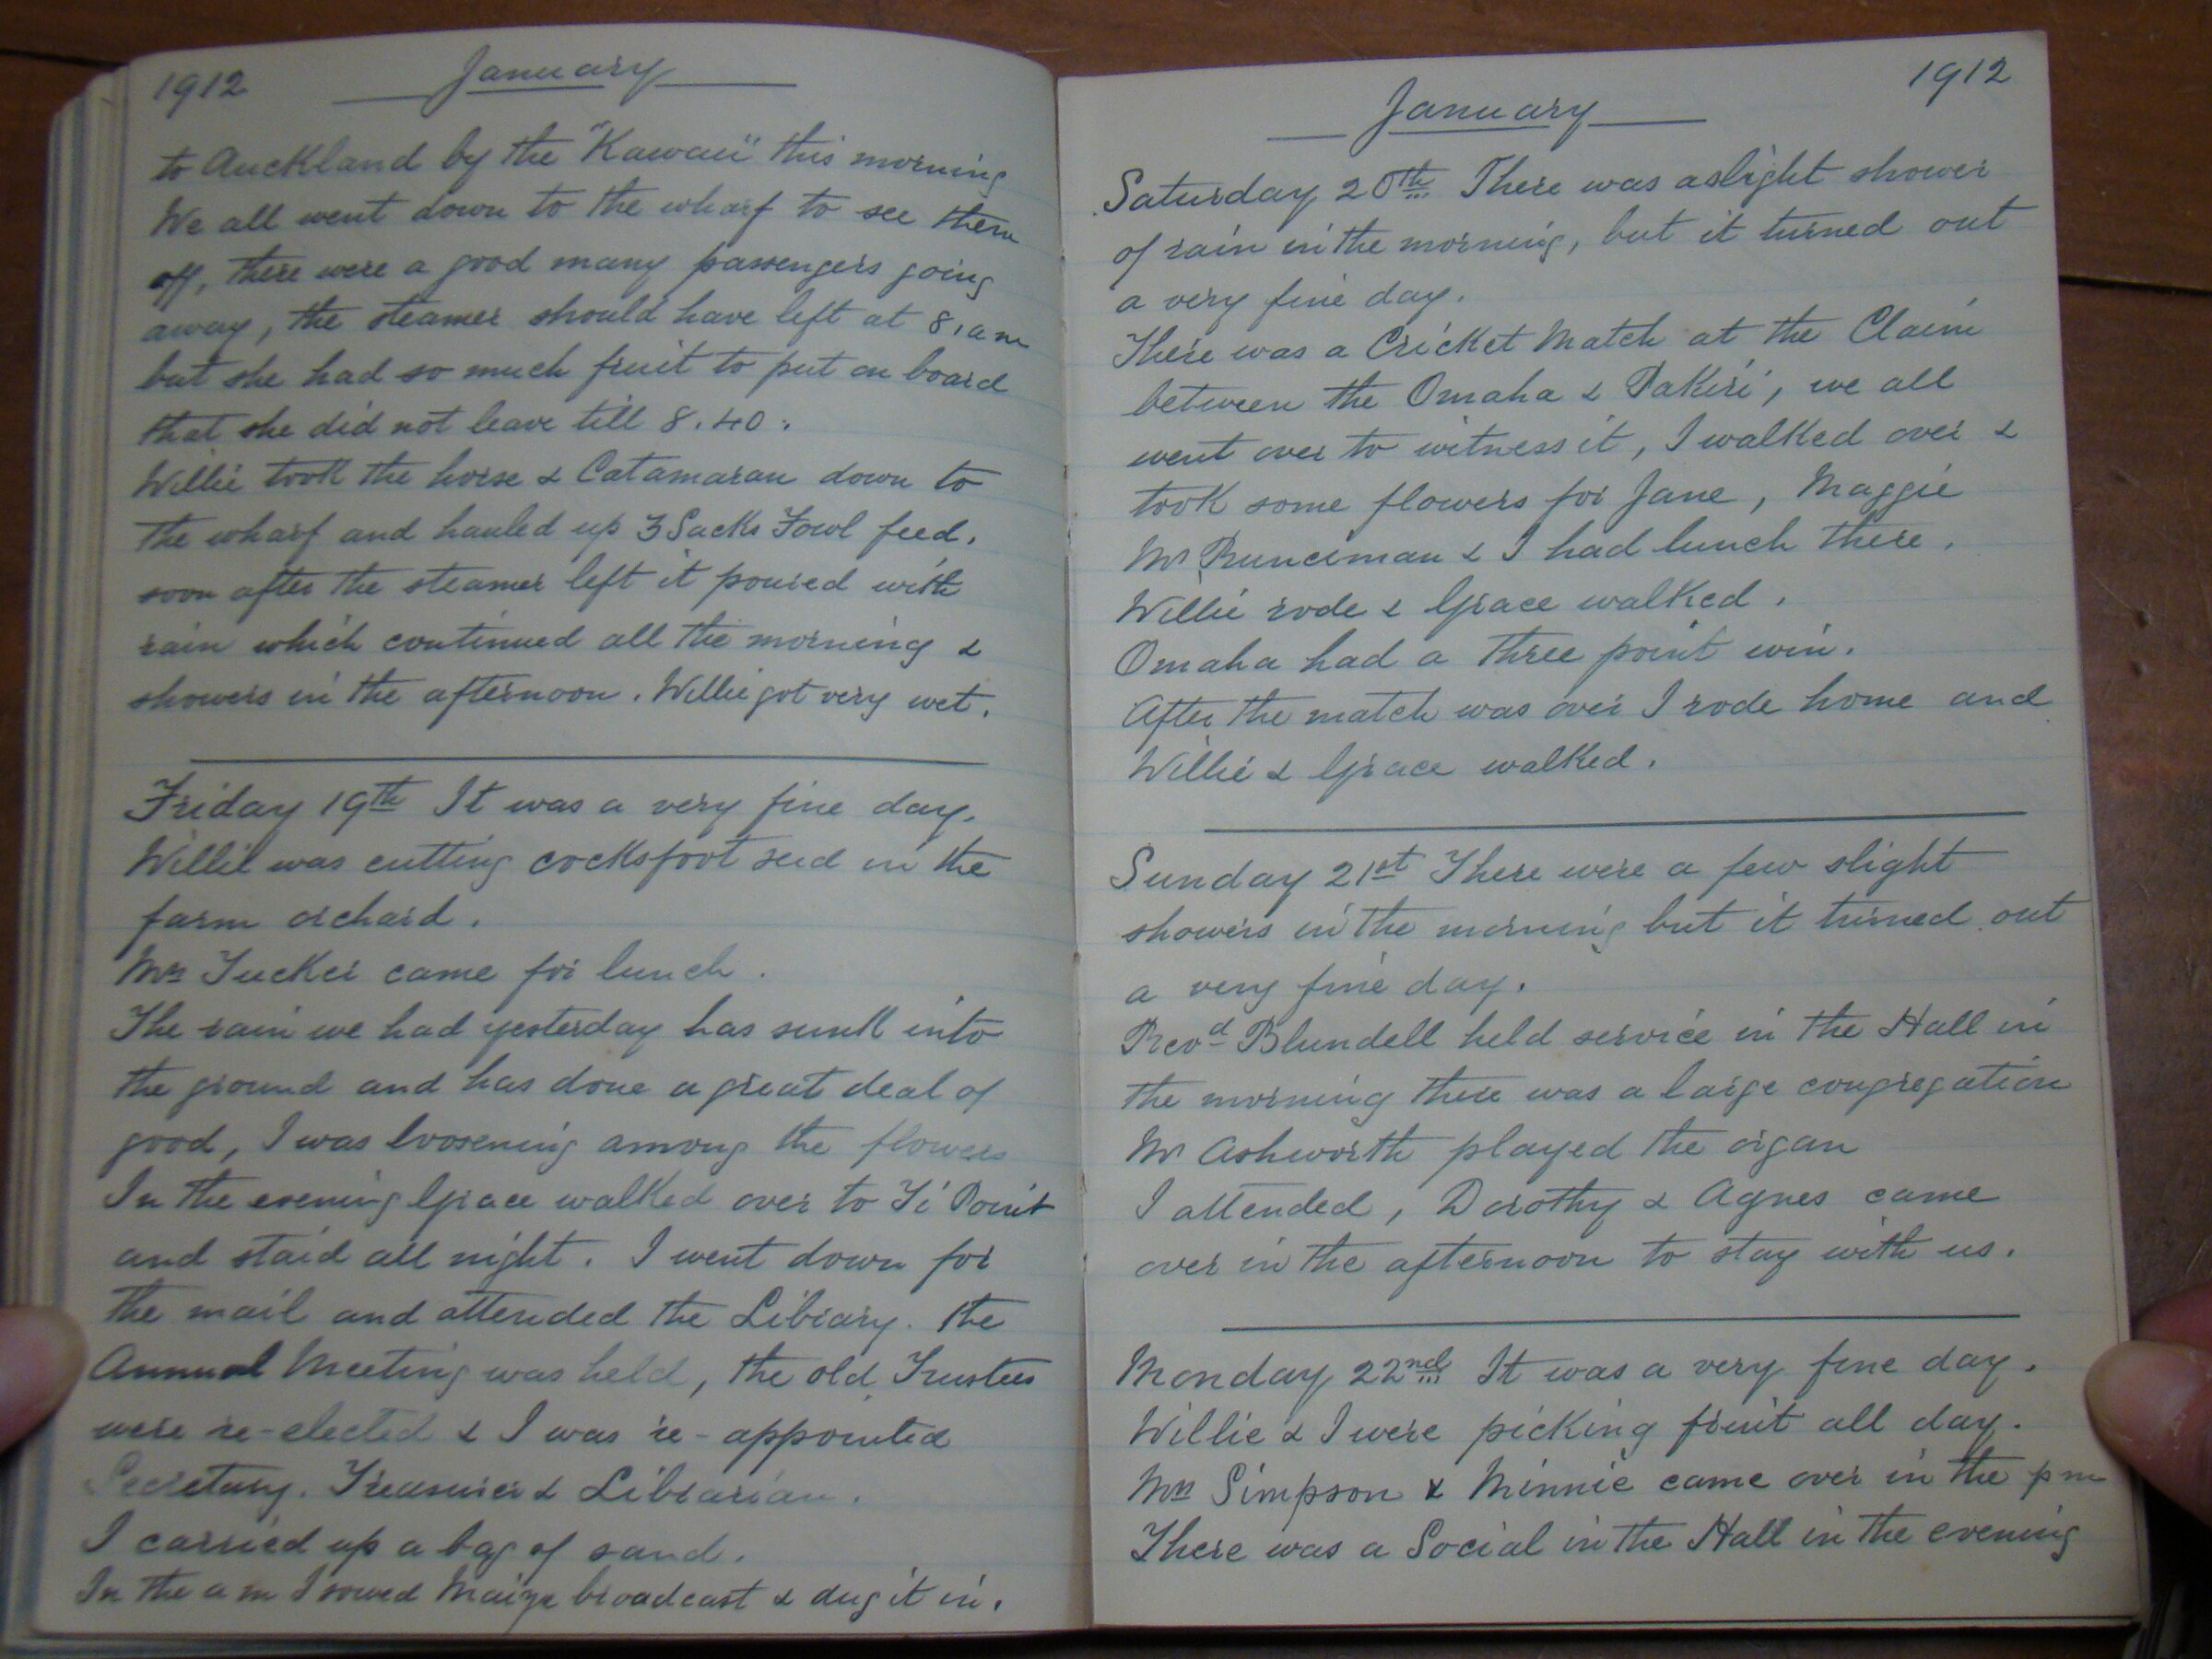 1912 January
to Auckland by the "Kawau" this morning
We all went down to the wharf to see them
off, there were a good many passengers going
away, the steamer should have left at 8.am
but she had so much fruit to put on board
that she did not leave till 8.40.
Willie took the horse & Catamaran down to
the wharf and hauled up 3 Sacks Fowl feed.
soon after the steamer left it poured with
rain which continued all the morning &
showers in the afternoon. Willie got very wet.
Friday 19th It was a very fine day.
Willie was cutting cocksfoot seed in the
farm orchard.
Mrs Tucker came for lunch.
The rain we had yesterday has sunk into
the ground and has done a great deal of
good, I was loosening among the flowers
In the evening Grace walked over to Ti Point
and staid all night. I went down for
the mail and attended the Library. the
Annual Meeting was held, the old Trustees
were re-elected & I was re-appointed
Secretary. Treasurer & Librarian.
I carried up a bag of sand.
In the a m I sowed Maize broadcast & dug it in.
January 1912
Saturday 20th There was a slight shower
of rain in the morning, but it turned out
a very fine day.
There was a Cricket Match at the Claim
between the Omaha & Pakiri, we all
went over to witness it, I walked over &
took some flowers for Jane, Maggie
Mr Runciman & I had lunch there.
Willie rode & Grace walked.
Omaha had a three point win.
After the match was over I rode home and
Willie & Grace walked.
Sunday 21st There were a few slight
showers in the morning but it turned out
a very fine day.
Revd Blundell held service in the Hall in
the morning there was a large congregation
Mr Ashworth played the organ
I attended, Dorothy & Agnes came
over in the afternoon to stay with us.
Monday 22nd It was a very fine day.
Willie & I were picking fruit all day.
Mrs Simpson & Minnie came over in the p m
There was a Social in the Hall in the evening